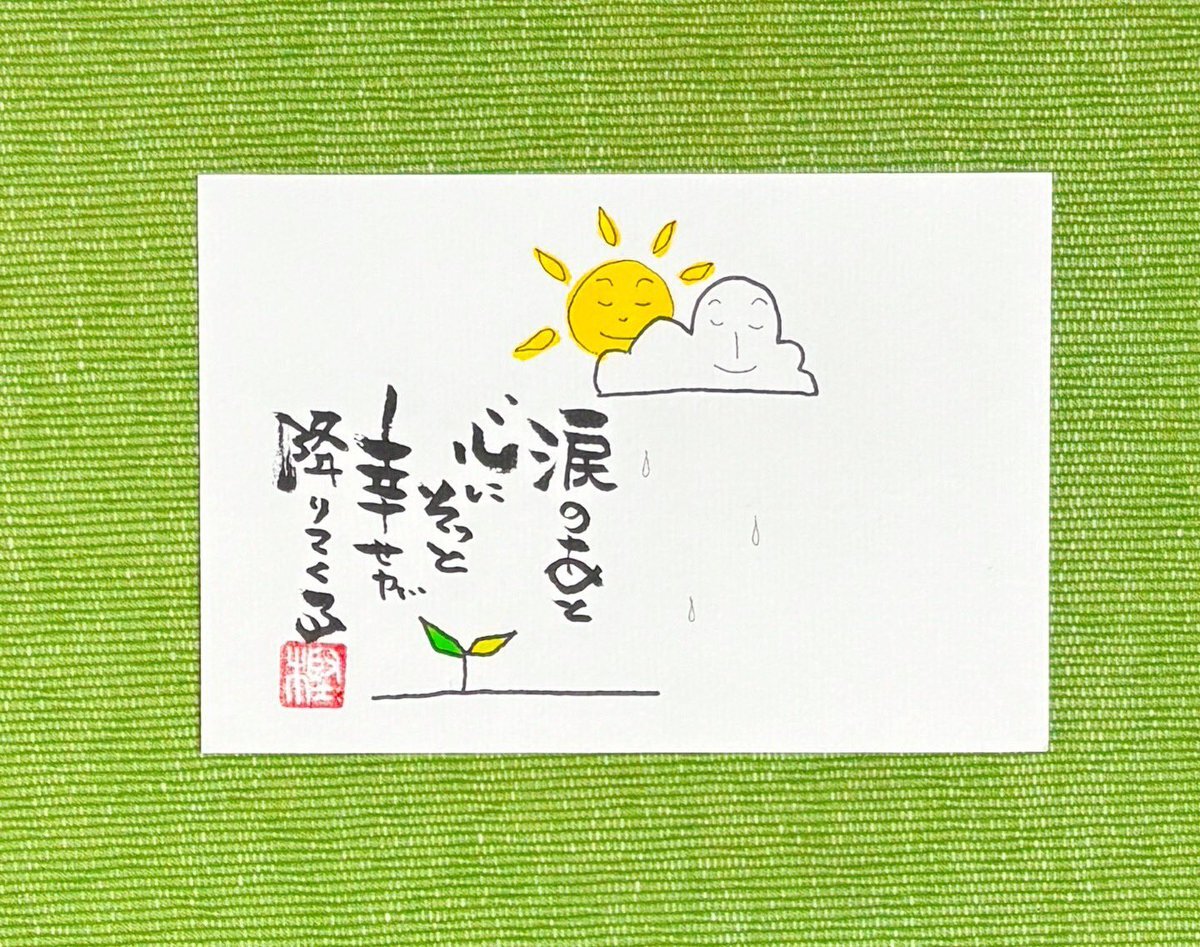 涙のあと
心に
そっと
幸せが
降りてくる